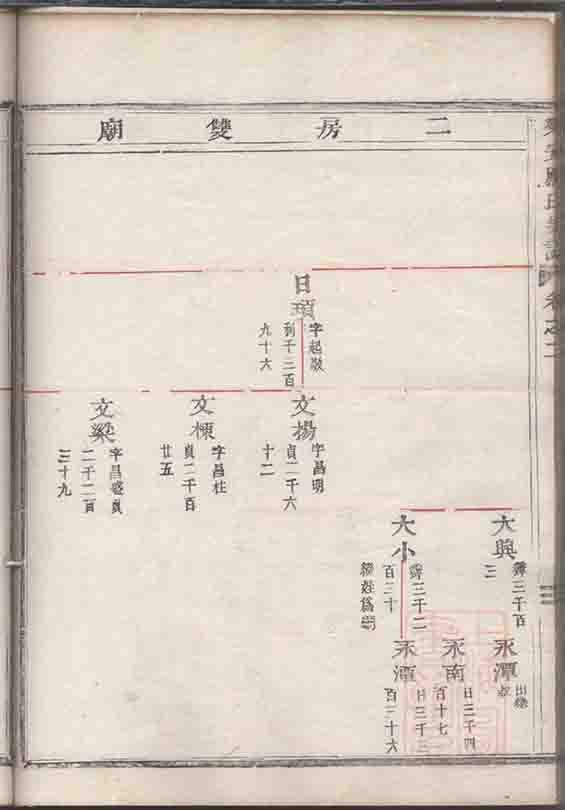 二房雙廟
卷之二
日頊
字起敬
利千三百
九十六
文揚
字昌明
貞二千六
十二
文棟
字昌柱
貞二千百
廿五
文梁
字昌盛貞
二千二百
三十九
大興
三千百
三
大小
三千二
百三十
永潭
出繼
永南
日三千四
百十七
永潭
日三千三
百三十六